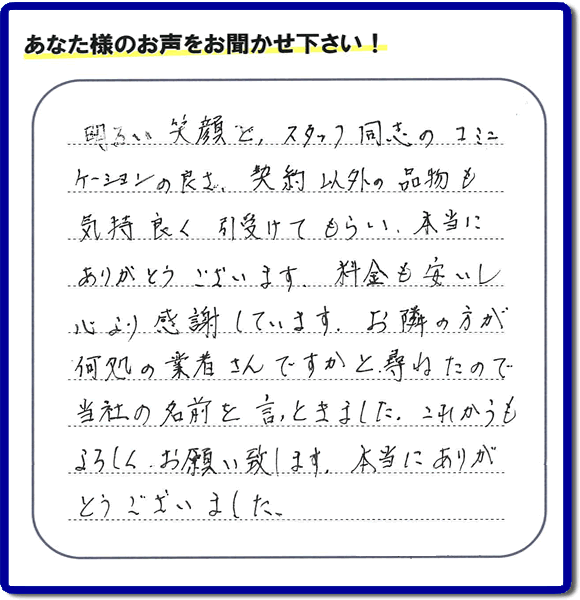 あなた様のお声をお聞かせ下さい!
明るい笑顔で、スタッフ同志のコミニ
ケーションの良さ、契約以外の品物も
気持良く引受けてもらい、本当に
ありがとうございます。料金も安いし
心より感謝しています。お隣の方が
何処の業者さんですかと尋ねたので
当社の名前を言っときました。これからも
よろしく、お願い致します。本当にありが
とうございました。